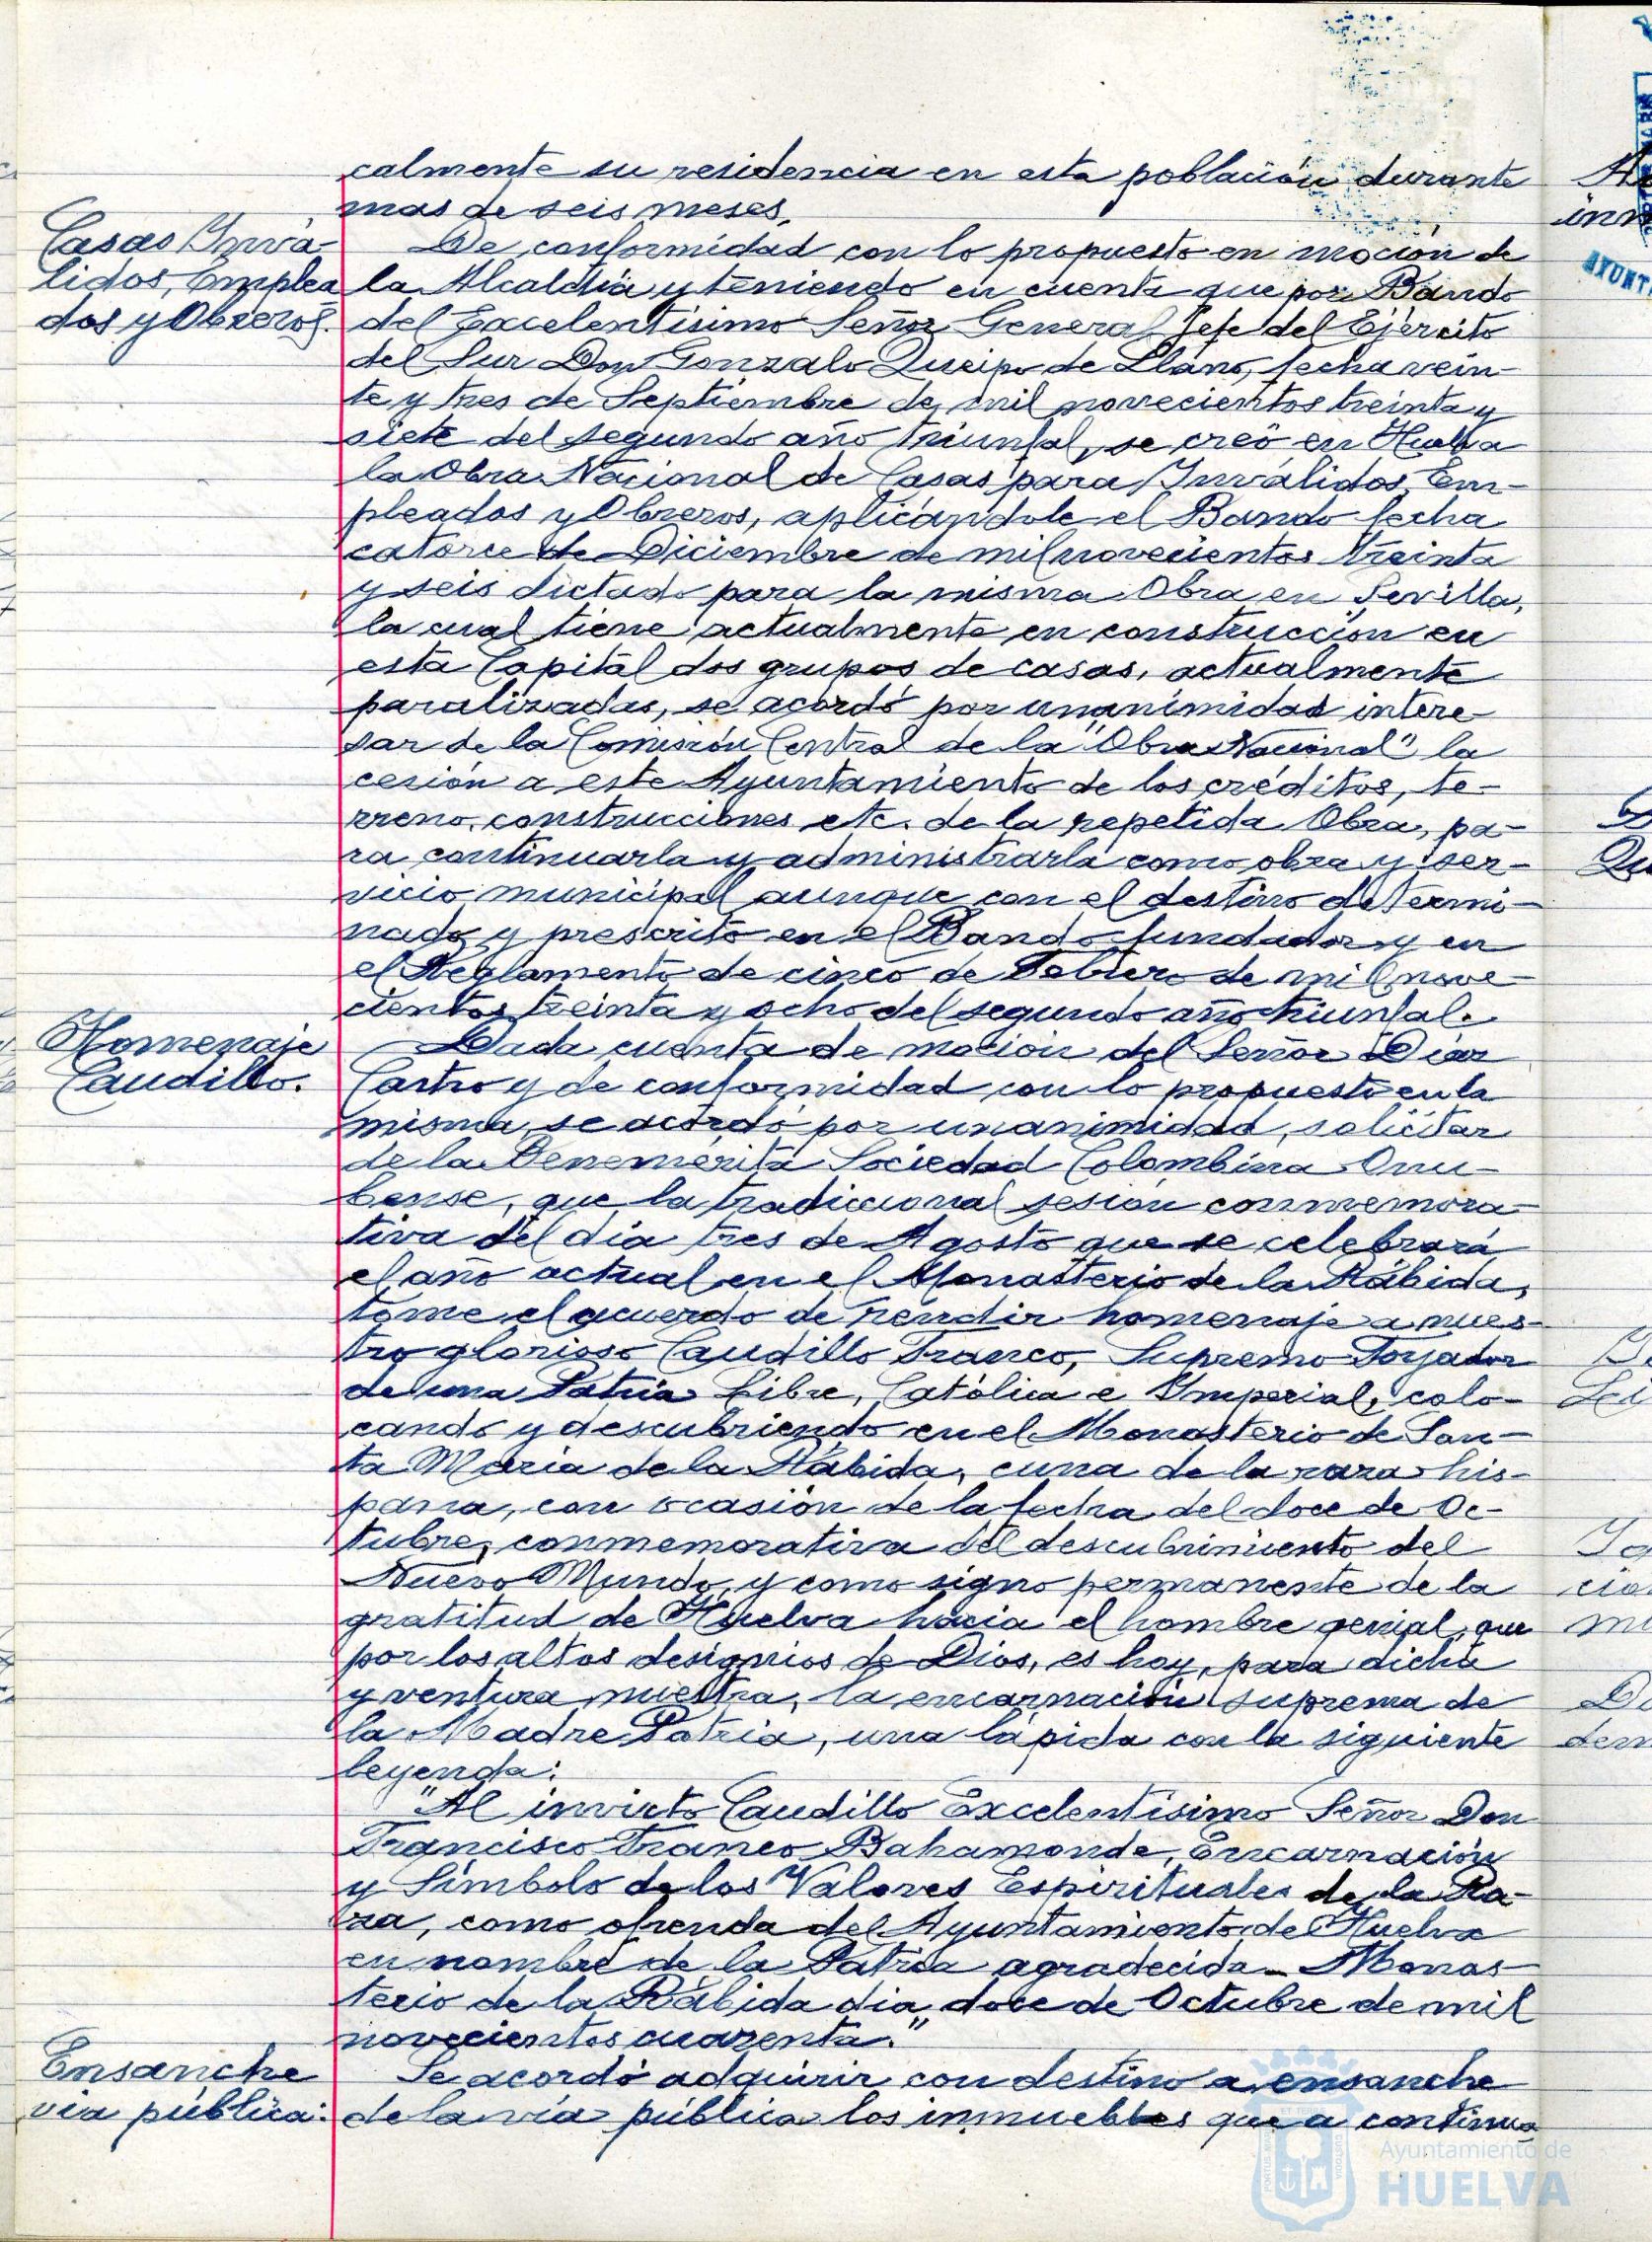 calmente su residencia en esta población durante
mas de seis meses.
Casas Invá-
lidos, Emplea
dos y Obreros.
De conformidad con lo propuesto en moción de
la Alcaldía y teniendo en cuenta que por Bando
del Excelentísimo Señor General Jefe del Ejército
del Sur Don Gonzalo Queipo de Llano, fecha vein-
te y tres de Septiembre de mil novecientos treinta y
siete del segundo año triunfal, se creó en Huelva
la Obra Nacional de Casas para Inválidos, Em-
pleados y Obreros, aplicándole el Bando fecha
catorce de Diciembre de mil novecientos treinta
y seis dictado para la misma Obra en Sevilla,
la cual tiene actualmente en construcción en
esta Capital dos grupos de casas, actualmente
paralizadas, se acordó por unanimidad intere-
sar de la Comisión Central de la "Obra Nacional" la
cesión a este Ayuntamiento de los créditos, te-
rreno, construcciones etc. de la repetida Obra, pa-
ra continuarla y administrarla como obra y ser-
vicio municipal aunque con el destino determi-
nado y prescrito en el Bando fundador y en
el Reglamento de cinco de Febrero de mil nove-
cientos treinta y ocho del segundo año triunfal.
Homenaje
Caudillo.
Dada cuenta de moción del Señor Díaz
Castro y de conformidad con lo propuesto en la
misma, se acordó por unanimidad, solicitar
de la Benemérita Sociedad Colombina Onu-
bense, que la tradiccional sesión conmemora-
tiva del día tres de Agosto que se celebrará
el año actual en el Monasterio de la Rábida,
tome el acuerdo de rendir homenaje a nues-
tro glorioso Caudillo Franco, Supremo Forjador
de una Patria Libre, Católica e Imperial, colo-
cando y descubriendo en el Monasterio de San-
ta María de la Rábida, cuna de la raza his-
pana, con ocasión de la fecha del doce de Oc-
tubre, conmemorativa del descubrimiento del
Nuevo Mundo, y como signo permanente de la
gratitud de Huelva hacia el hombre genial, que
por los altos designios de Dios, es hoy, para dicha
y ventura nuestra, la encarnación suprema de
la Madre Patria, una lápida con la siguiente
leyenda:
"Al invicto Caudillo Excelentísimo Señor Don
Francisco Franco Bahamonde, Encarnación
y Símbolo de los Valores Espirituales de la Ra-
za, como ofrenda del Ayuntamiento de Huelva
en nombre de la Patria agradecida - Monas-
terio de la Rábida día doce de Octubre de mil
novecientos cuarenta."
Ensanche
vía pública:
Se acordó adquirir con destino a ensanche
de la vía pública los inmuebles que a continua
Ayuntamiento de
HUELVA